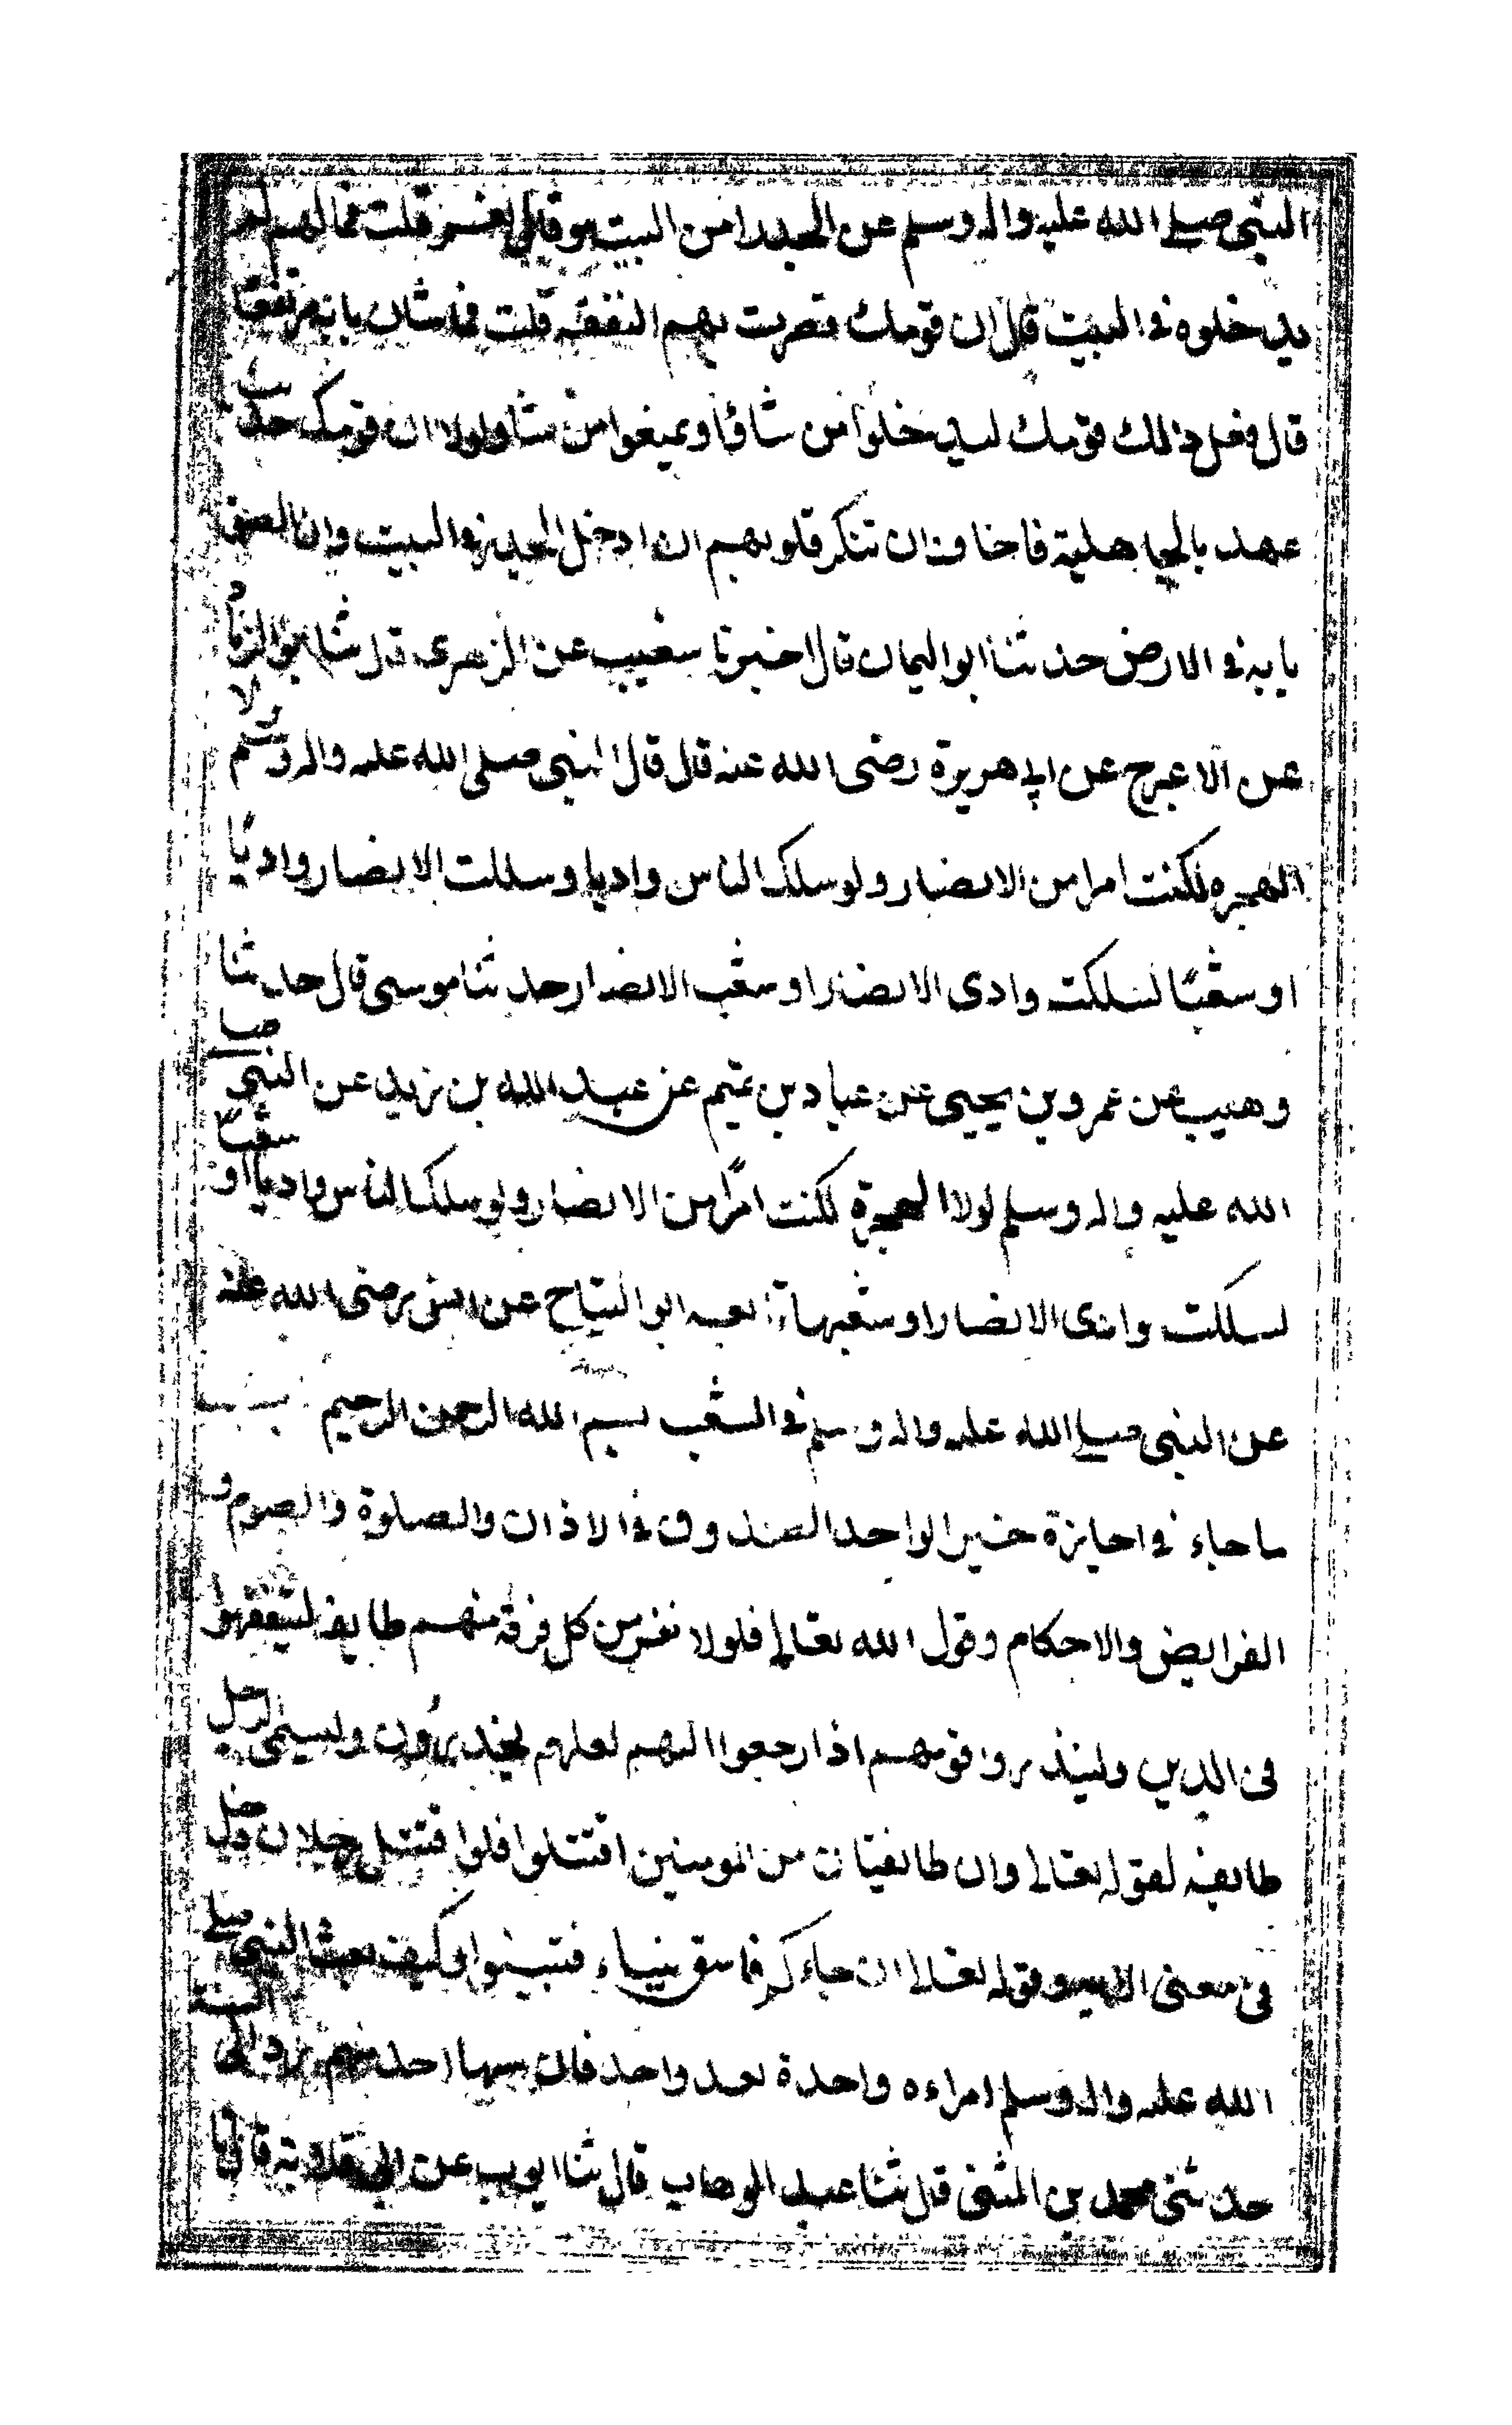 النبي صلى الله عليه واله وسلم عن الجدر امن البيت هو قال نعم قلت فما لهم لم
يدخلوه في البيت قال ان قومك قصرت بهم النفقة قلت فما شان بابه مرتفعا
قال فعل ذلك قومك ليدخلوا من شاؤا ويمنعوا من شاو لولا ان قومك حديث
عهد بالجاهلية فاخاف ان تنكر قلوبهم ان ادخل الجدر في البيت وان الصق
بابه في الارض حدثنا ابو اليمان قال اخبرنا شعيب عن الزهرى قال ثنا ابو الزناد
عن الاعرج عن ابي هريرة رضى الله عنه قال قال النبي صلى الله عليه واله وسلم لولا
الهجره لكنت امرا من الانصار ولو سلك الناس واديا وسلكت الانصار واديًا
او شعبًا لسلكت وادى الانصار او شعب الانصار حدثنا موسى قال حدثنا
وهيب عن عمرو بن يحيى عن عباد بن تميم عن عبد الله بن زيد عن النبي صلى
الله عليه واله وسلم لولا الهجرة لكنت امرًا من الانصار ولو سلك الناس واديا او شعبًا
لسلكت وادى الانصار او شعبها تابعه ابو التياح عن انس رضى الله عنه
عن النبي صلى الله عليه واله وسلم في الشعب بسم الله الرحمن الرحيم
ما جاء في اجازة خبر الواحد الصدوق في الاذان والصلوة والصوم و
الفرايض والاحكام وقول الله تعالى فلولا نفر من كل فرقة منهم طايفة ليتفقهوا
في الدين ولينذروا قومهم اذا رجعوا اليهم لعلهم يحذرون ويسمى الرجل
طايفة لقوله تعالى وان طائفتان من المومنين اقتتلوا فلوا قتتل رجلان دخل
في معنى الاية وقوله تعالى ان جاءكم فاسق بنباء فتبينوا وكيف بعث النبي صلى
الله عليه واله وسلم امراءه واحدة بعد واحد فان سها احد منهم رد الى السنة
حدثني محمد بن المثنى قال ثنا عبد الوهاب قال ثنا ايوب عن ابي قلابة قال ثنا